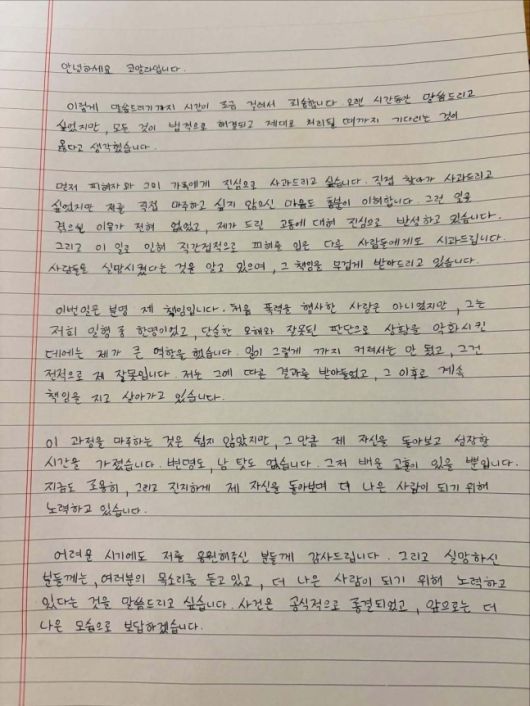 안녕하세요 코알라입니다.
이렇게 말씀드리기까지 시간이 조금 걸려서 죄송합니다 오랜 시간동안 말씀드리고
싶었지만, 모든 것이 법적으로 해결되고 제대로 처리될 때까지 기다리는 것이
옳다고 생각했습니다.
먼저 피해자와 그의 가족에게 진심으로 사과드리고 싶습니다. 직접 찾아가 사과드리고
싶었지만 저를 직접 마주하고 싶지 않으신 마음도 충분히 이해합니다. 그런 일을
겪으실 이유가 전혀 없었고, 제가 드린 고통에 대해 진심으로 반성하고 있습니다.
그리고 이 일로 인해 직간접적으로 피해를 입은 다른 사람들에게도 사과드립니다.
사람들을 실망시켰다는 것을 알고 있으며, 그 책임을 무겁게 받아드리고 있습니다.
이번일은 분명 제 책임입니다. 처음 폭력을 행사한 사람은 아니었지만, 그는
저희 일행 중 한명이었고, 단순한 오해와 잘못된 판단으로 상황을 악화시킨
데에는 제가 큰 역할을 했습니다. 일이 그렇게 까지 커져서는 안 됐고, 그건
전적으로 제 잘못입니다. 저는 그에 따른 결과를 받아들였고, 그 이후로 계속
책임을 지고 살아가고 있습니다.
이 과정을 마주하는 것은 쉽지 않았지만, 그 만큼 제 자신을 돌아보고 성장할
시간을 가졌습니다. 변명도, 남 탓도 없습니다. 그저 배운 교훈이 있을 뿐입니다.
지금도 조용히, 그리고 진지하게 제 자신을 돌아보며 더 나은 사람이 되기 위해
노력하고 있습니다.
어려운 시기에도 저를 응원해주신 분들께 감사드립니다. 그리고 실망하신
분들께는, 여러분의 목소리를 듣고 있고, 더 나은 사람이 되기 위해 노력하고
있다는 것을 말씀드리고 싶습니다. 사건은 공식적으로 종결되었고, 앞으로는 더
나은 모습으로 보답하겠습니다.